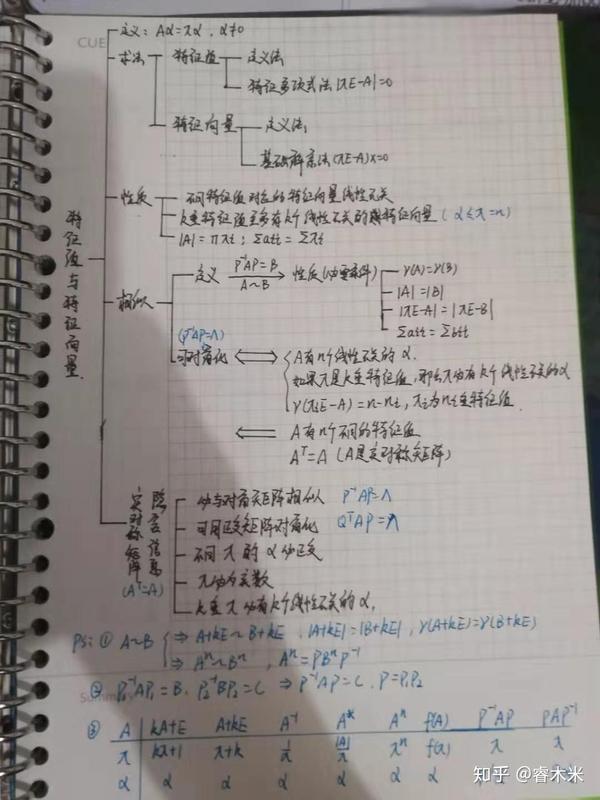 CUE
定义: Aα=λα, α≠0
求法 特征值 定义法
特征多项式法 |λE-A|=0
特征向量 定义法
基础解系法(λE-A)x=0
特征值与特征向量
性质 不同特征值对应的特征向量线性无关
k重特征值至多有k个线性无关的特征向量
|A|=πλi; Σaii=Σλi
相似 定义 P⁻¹AP=B A~B 性质(必要条件) r(A)=r(B)
|A|=|B|
|λE-A|=|λE-B|
Σaii=Σbii
(P⁻¹AP=Λ)
可对角化 ⟺ A有n个线性无关的α.
如果λ是k重特征值,那么λ必有k个线性无关的α
r(λiE-A)=n-ni, λi为ni重特征值.
⟸ A有n个不同的特征值
Aᵀ=A (A是实对称矩阵)
实对称矩阵 隐含信息 (Aᵀ=A)
必与对角矩阵相似 P⁻¹AP=Λ
可用正交矩阵对角化 QᵀAP=Λ
不同λ的α必正交
λ必为实数
k重λ必有k个线性无关的α.
PS: ① A~B ⇒ A+kE~B+kE, |A+kE|=|B+kE|, r(A+kE)=r(B+kE)
⇒ Aⁿ~Bⁿ, Aⁿ=PBⁿP⁻¹
② P₁⁻¹AP₁=B, P₂⁻¹BP₂=C ⇒ P⁻¹AP=C, P=P₁P₂
③ A kA+E A+kE A⁻¹ A* Aⁿ f(A) P⁻¹AP PAP⁻¹
λ kλ+1 λ+k 1/λ |A|/λ λⁿ f(λ) λ λ
α α α α α α α
知乎 @睿木米